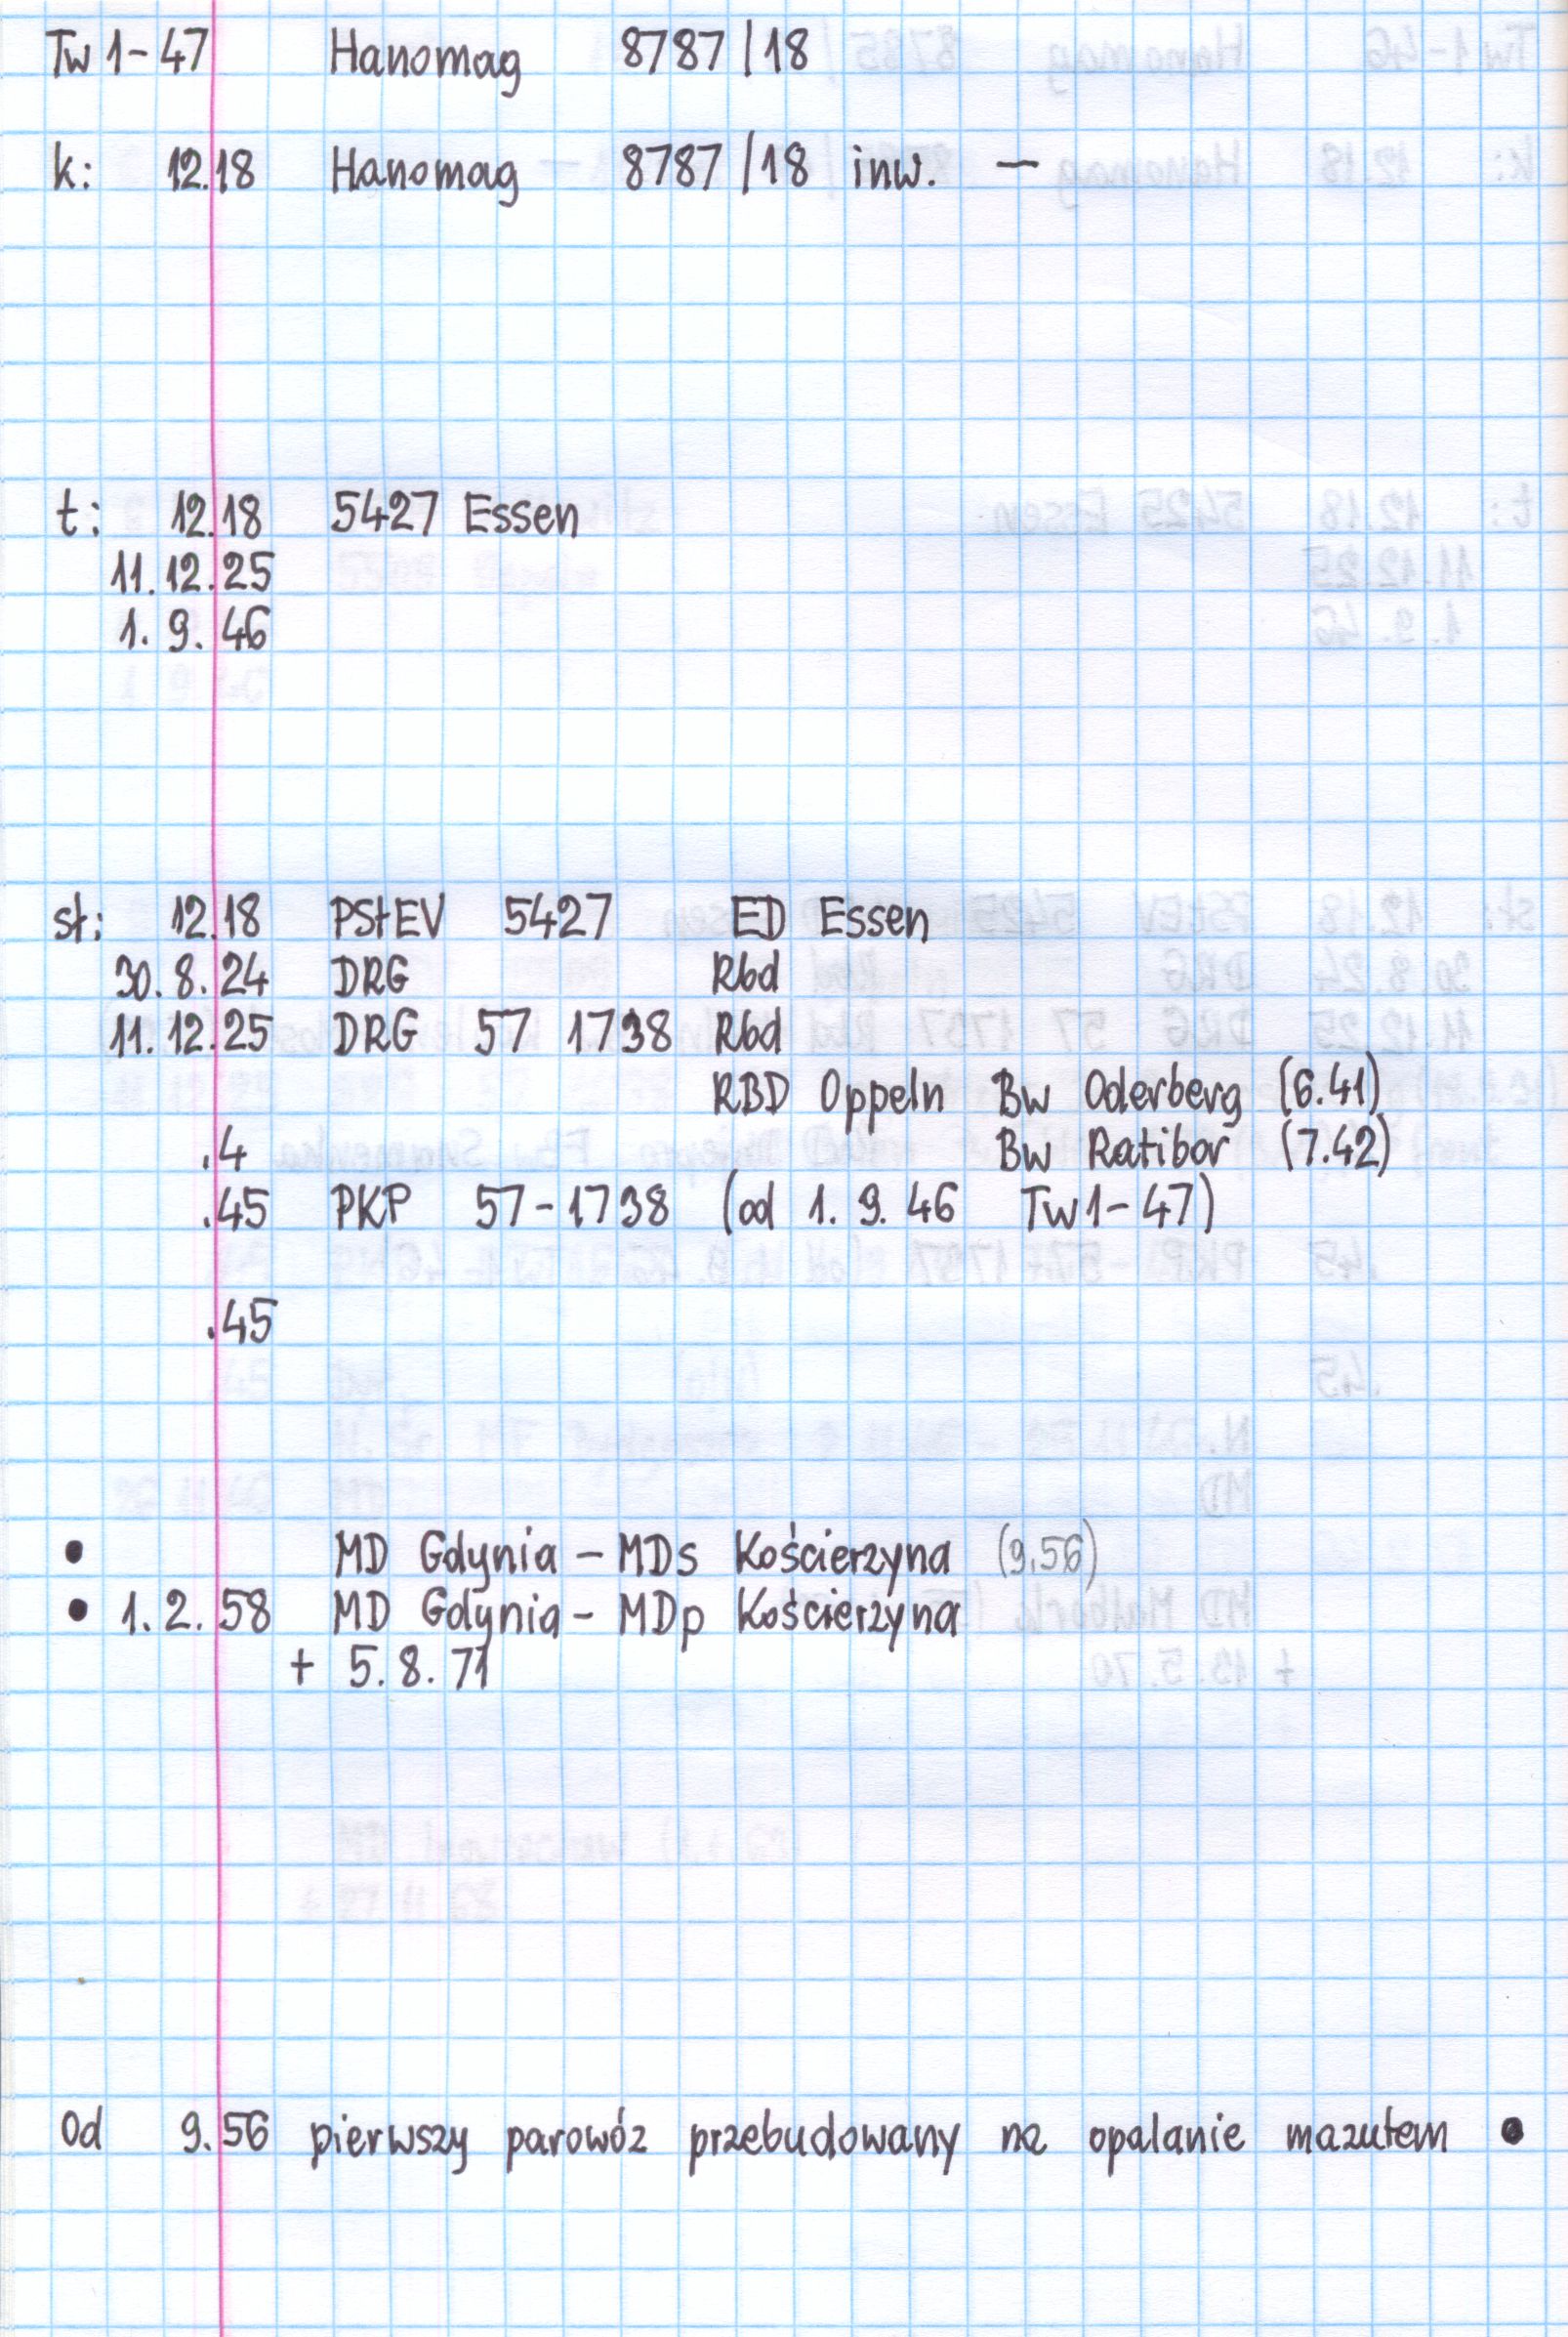 Tw 1-47 Hanomag 8787/18
k: 12.18 Hanomag 8787/18 inw. —
t: 12.18 5427 Essen
11.12.25
1. 9. 46
st: 12.18 PStEV 5427 ED Essen
30. 8. 24 DRG Rbd
11. 12. 25 DRG 57 1738 Rbd
RBD Oppeln Bw Oderberg (6.41)
.4 Bw Ratibor (7.42)
.45 PKP 57-1738 (od 1. 9. 46 Tw 1-47)
.45
• MD Gdynia - MDs Kościerzyna (9.56)
• 1. 2. 58 MD Gdynia - MDp Kościerzyna
+ 5. 8. 71
Od 9.56 pierwszy parowóz przebudowany na opalanie mazutem •